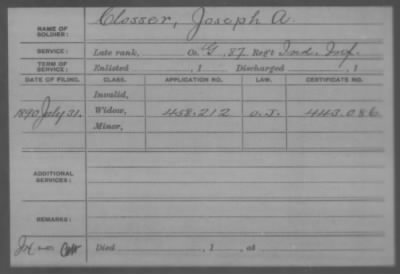 NAME OF SOLDIER: Closser, Joseph A.
SERVICE: Late rank, Co. G, 87 Reg't Ind. Inf.
TERM OF SERVICE: Enlisted , 1 Discharged , 1
DATE OF FILING. CLASS. APPLICATION NO. LAW. CERTIFICATE NO.
Invalid,
1890 July 31. Widow, 458.212 O.L. 443.086
Minor,
ADDITIONAL SERVICES:
REMARKS:
Died , 1 , at